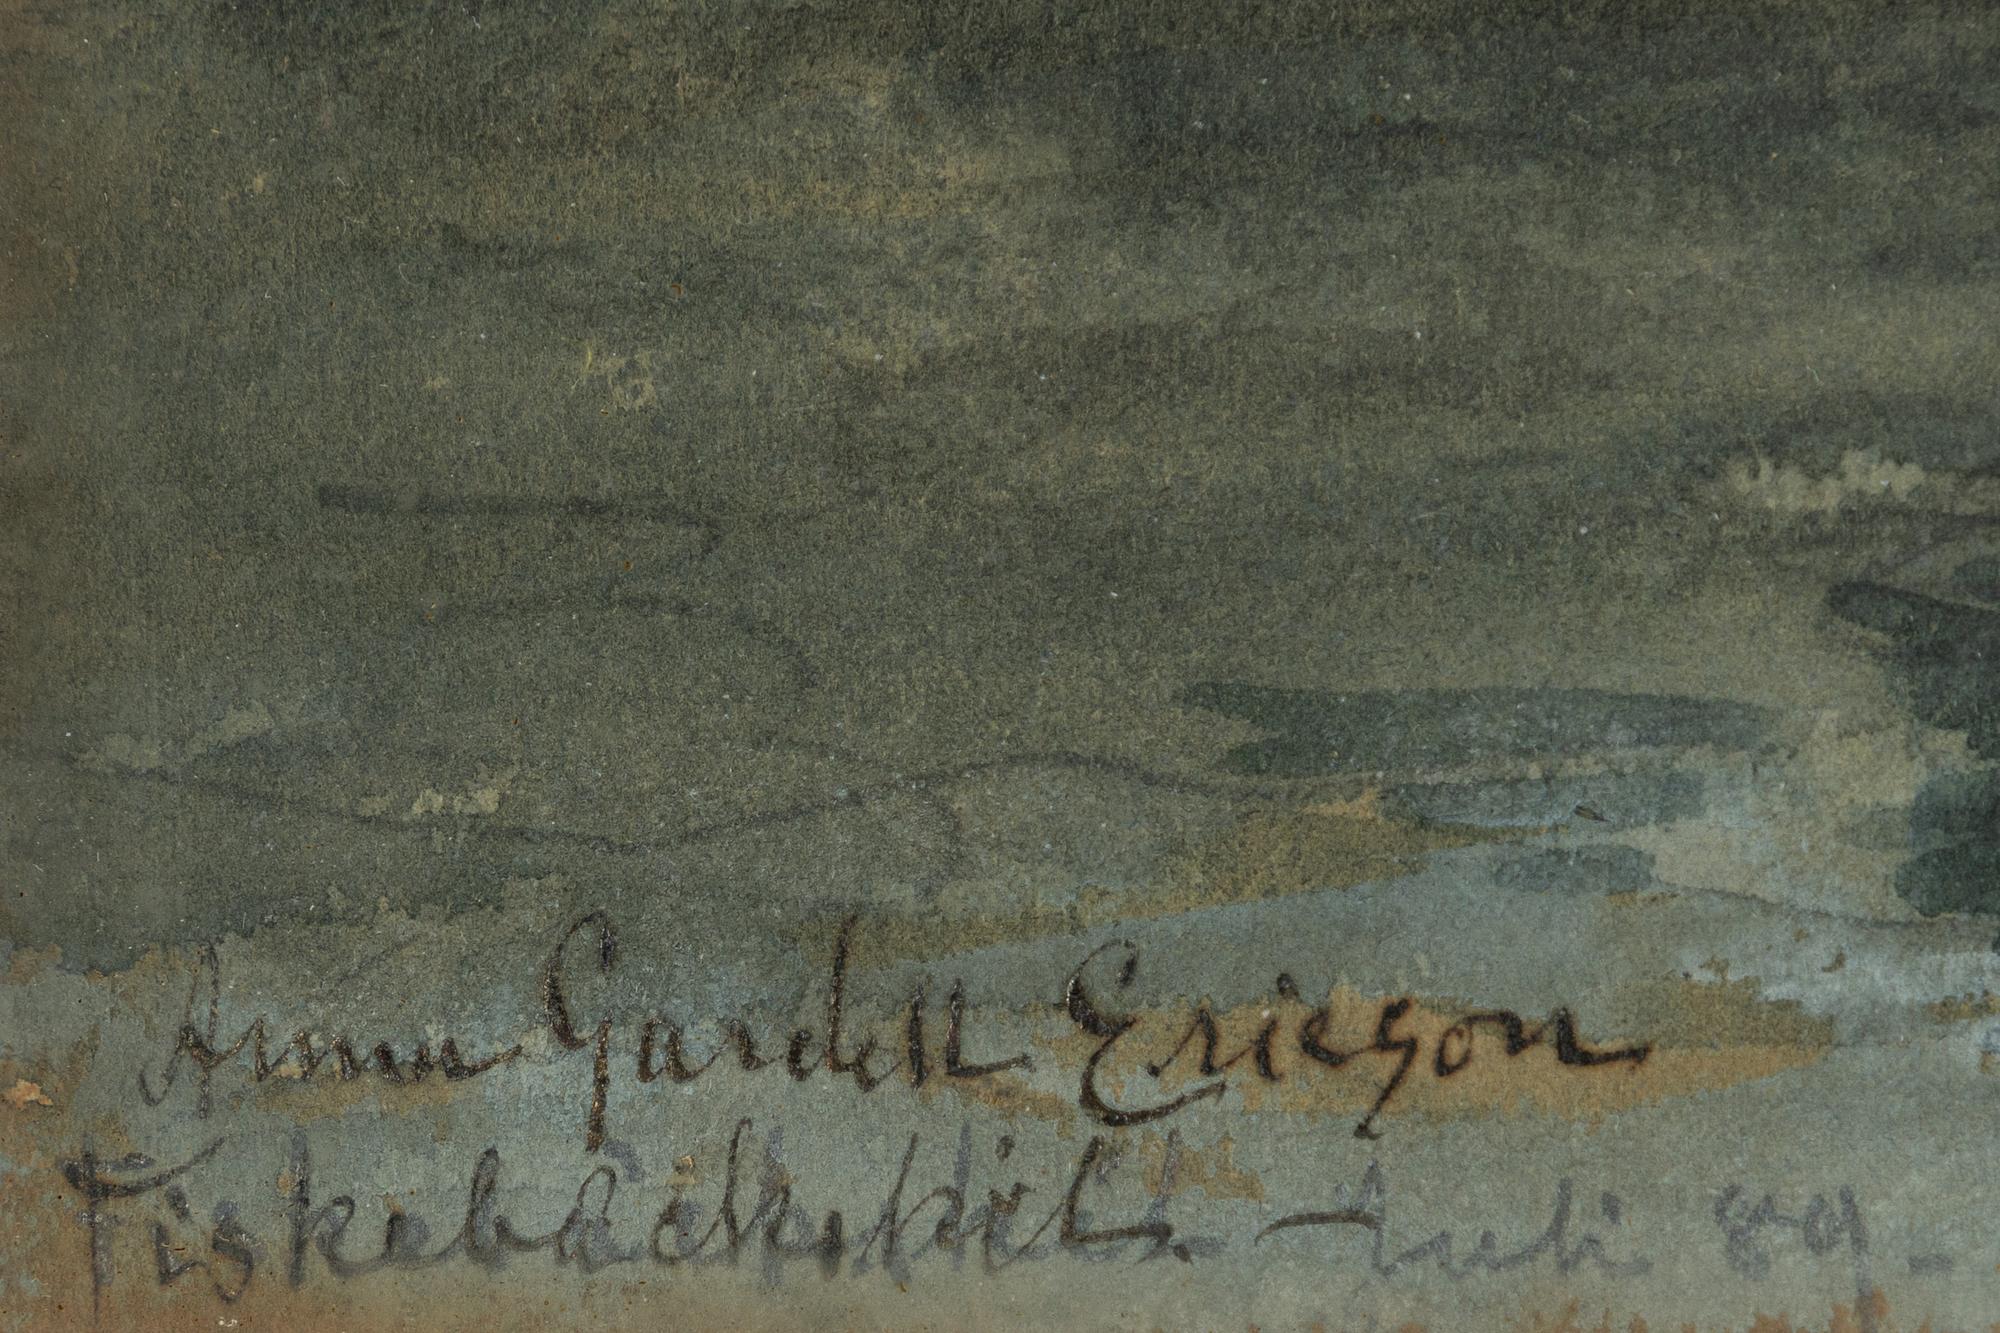 Anna Gardell Ericson
Fiskebäckskil. - Juli 89 -